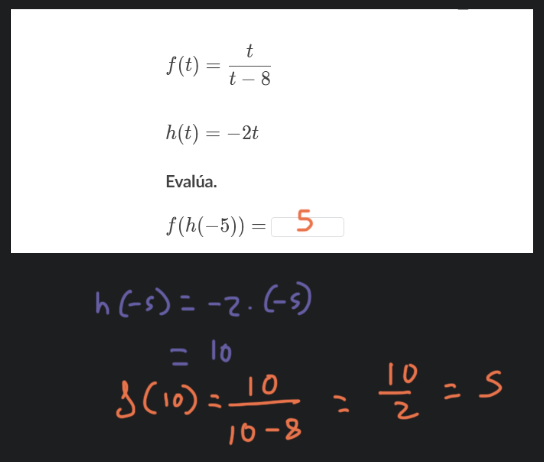 f(t) = t / (t − 8)
h(t) = −2t
Evalúa.
f(h(−5)) = 5
h(-5) = -2 . (-5)
= 10
f(10) = 10 / (10-8) = 10 / 2 = 5